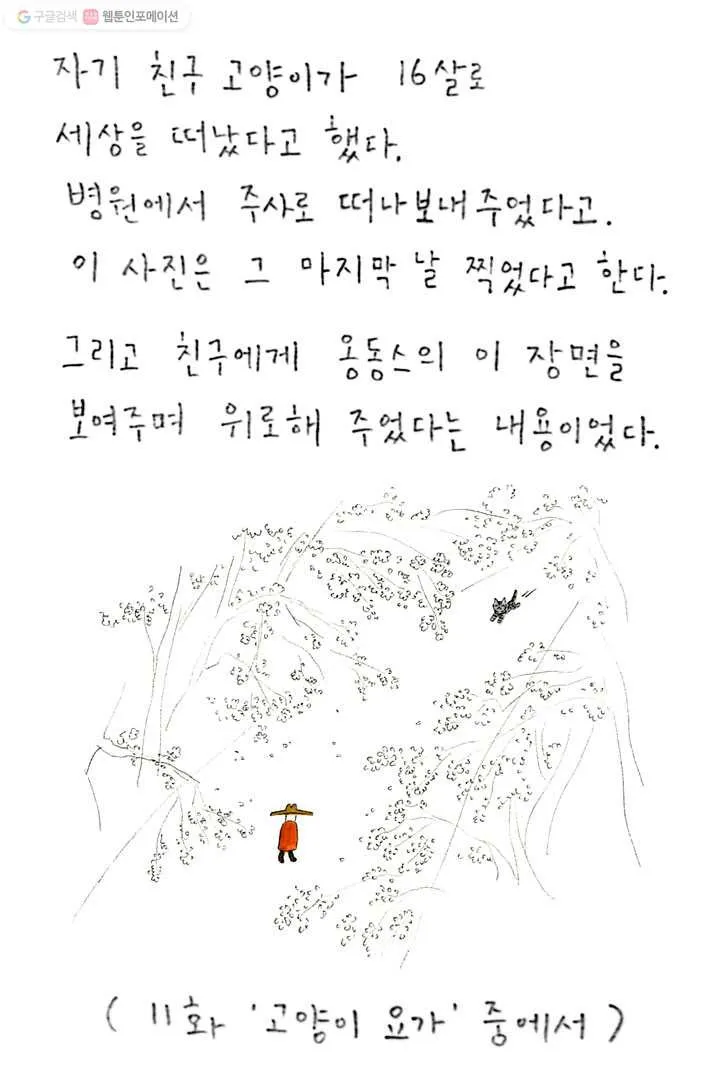 구글검색 웹툰인포메이션
자기 친구 고양이가 16살로
세상을 떠났다고 했다.
병원에서 주사로 떠나보내주었다고.
이 사진은 그 마지막 날 찍었다고 한다.
그리고 친구에게 옹동스의 이 장면을
보여주며 위로해 주었다는 내용이었다.
( 11화 '고양이 요가' 중에서 )